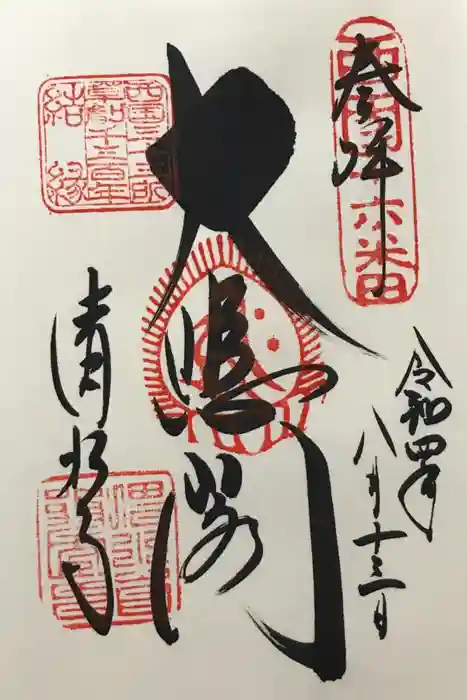 西国十六番
奉拝
令和四年
八月十三日
大悲閣
西国三十三所
草創千三百年
結縁
清水寺